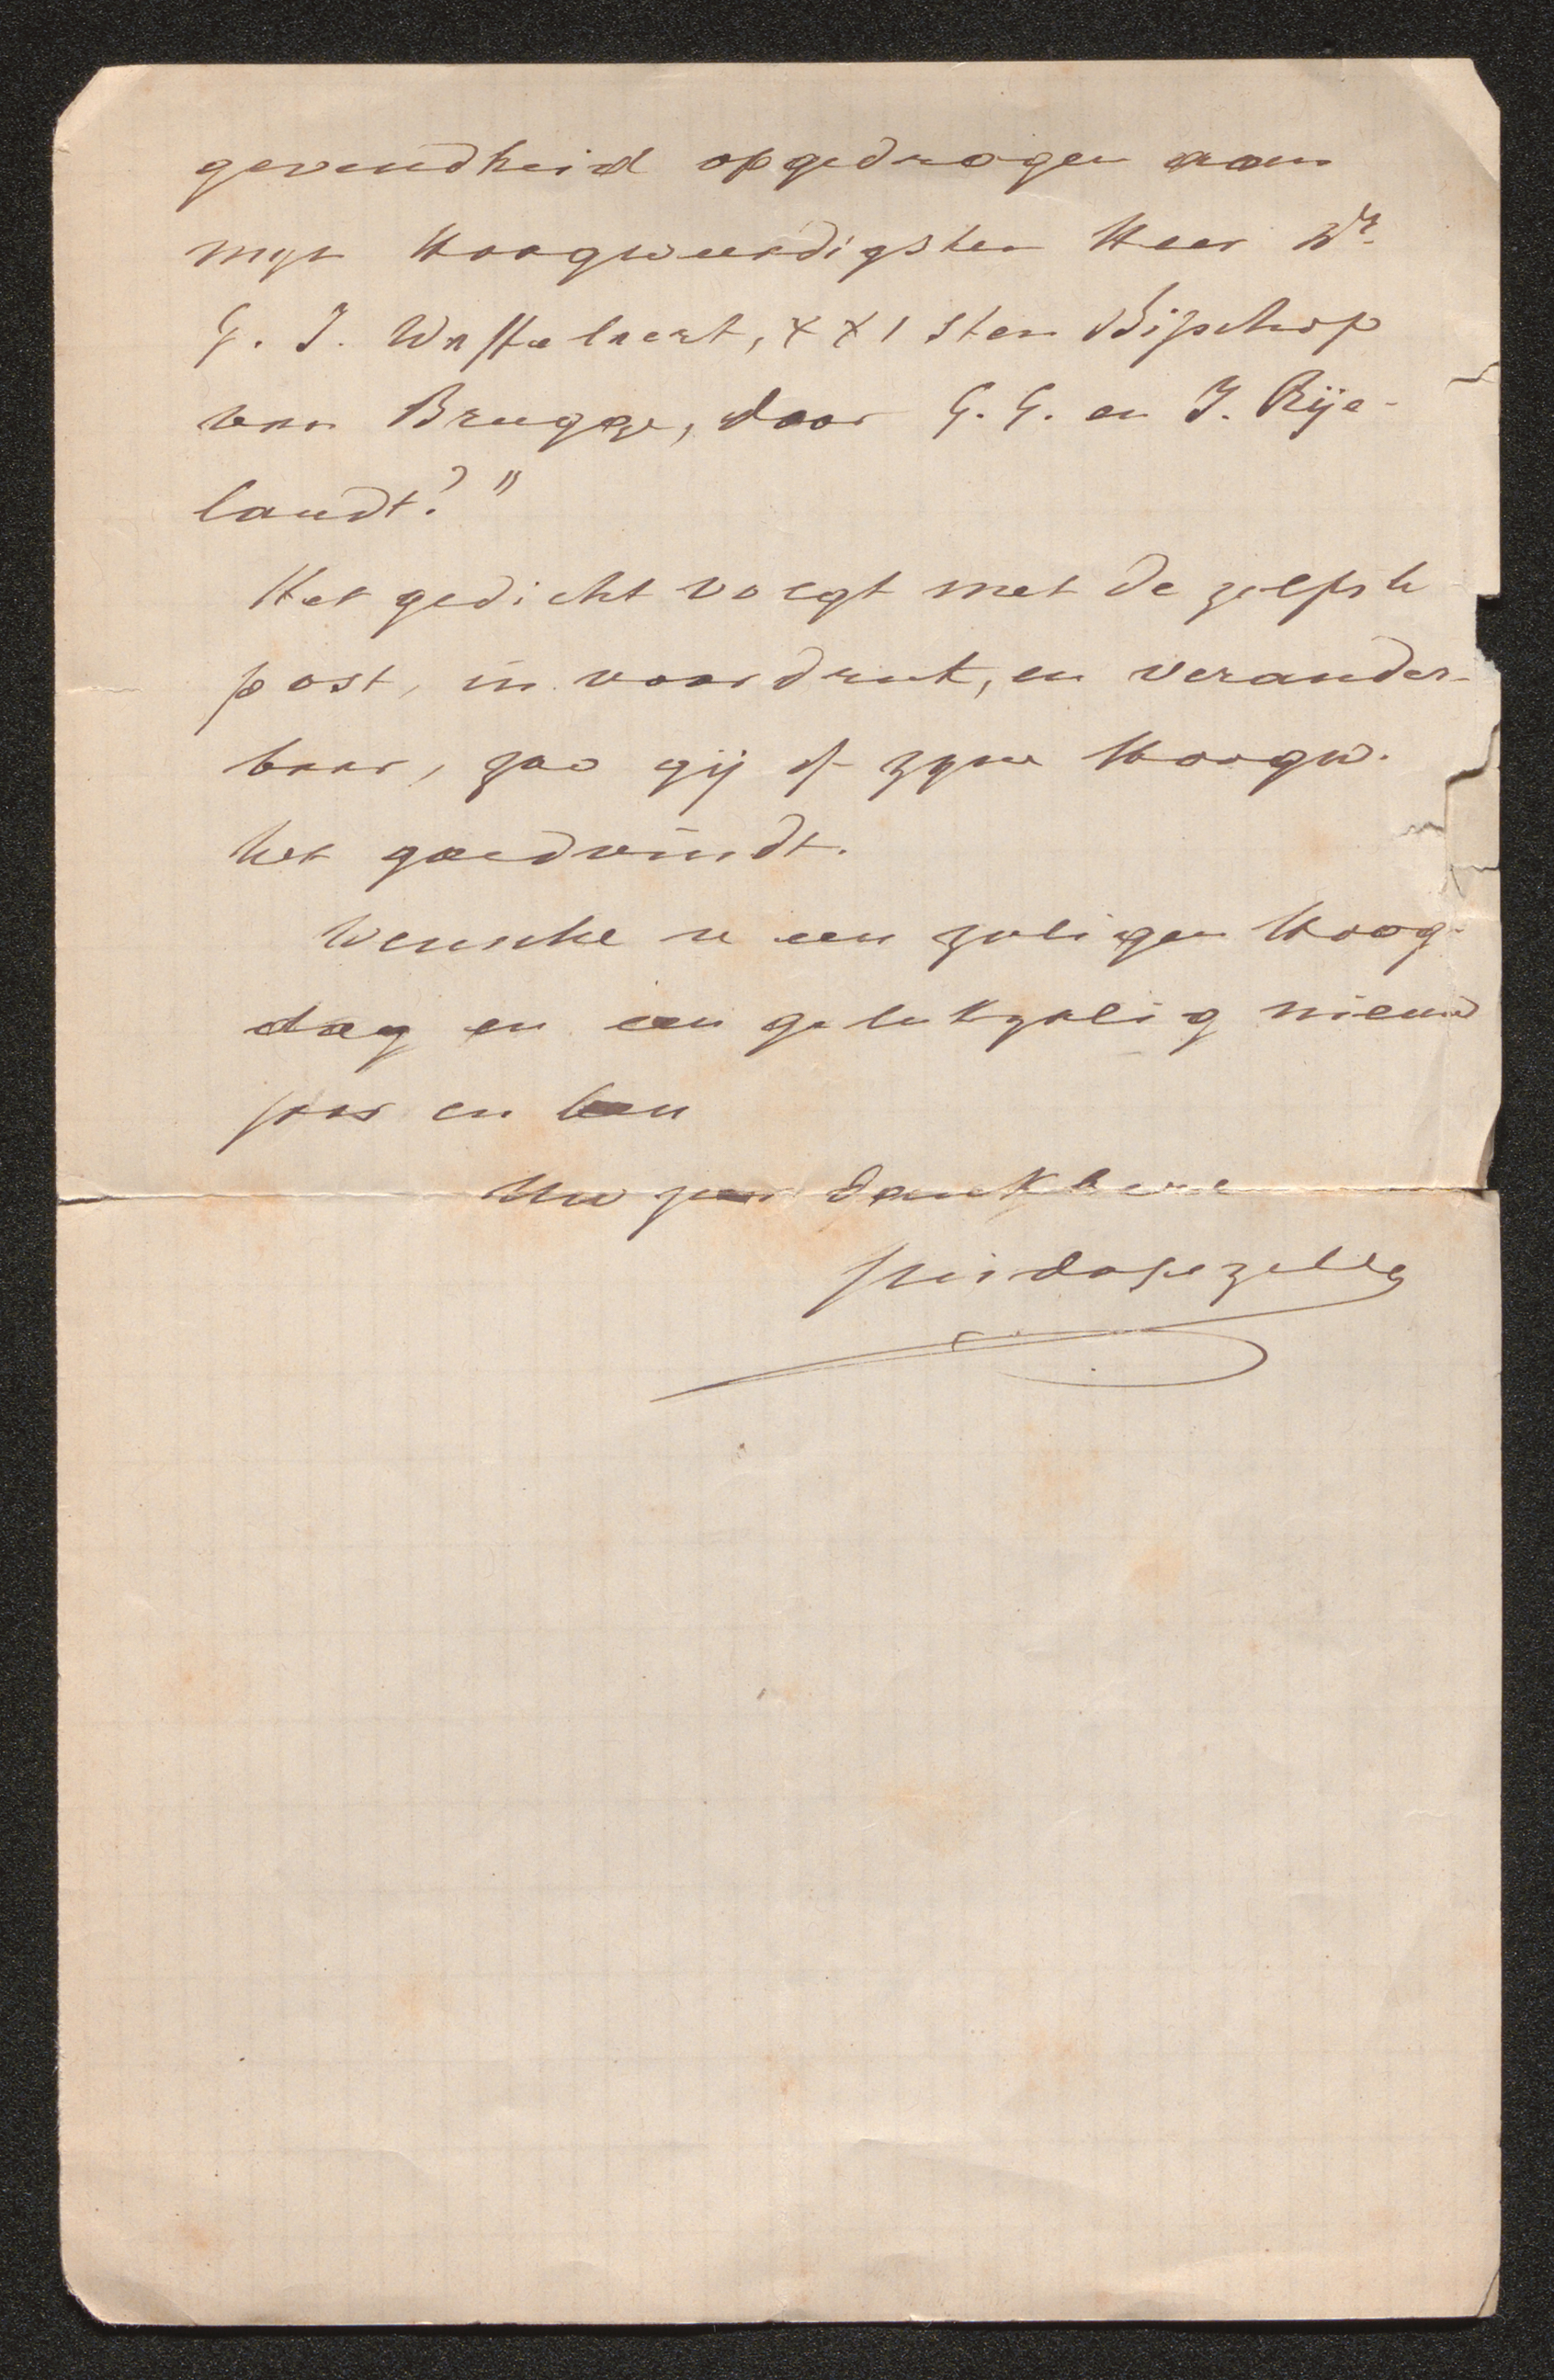 gevendheid opgedragen aan
mijn Hoogweerdigsten Heer Dr.
G. J. Waffelaert, XXIsten Bisschop
van Brugge, door G. G. en J. Rije-
landt?"
Het gedicht volgt met de zelfste
post, in voordruk, en verander-
baar, zoo gij of zijne Hoogw.
het goedvindt.
Wensche u een zaligen Hoog-
dag en een gelukzalig nieuw
jaar en ben
Uw zeer dankbare
Guido Gezelle